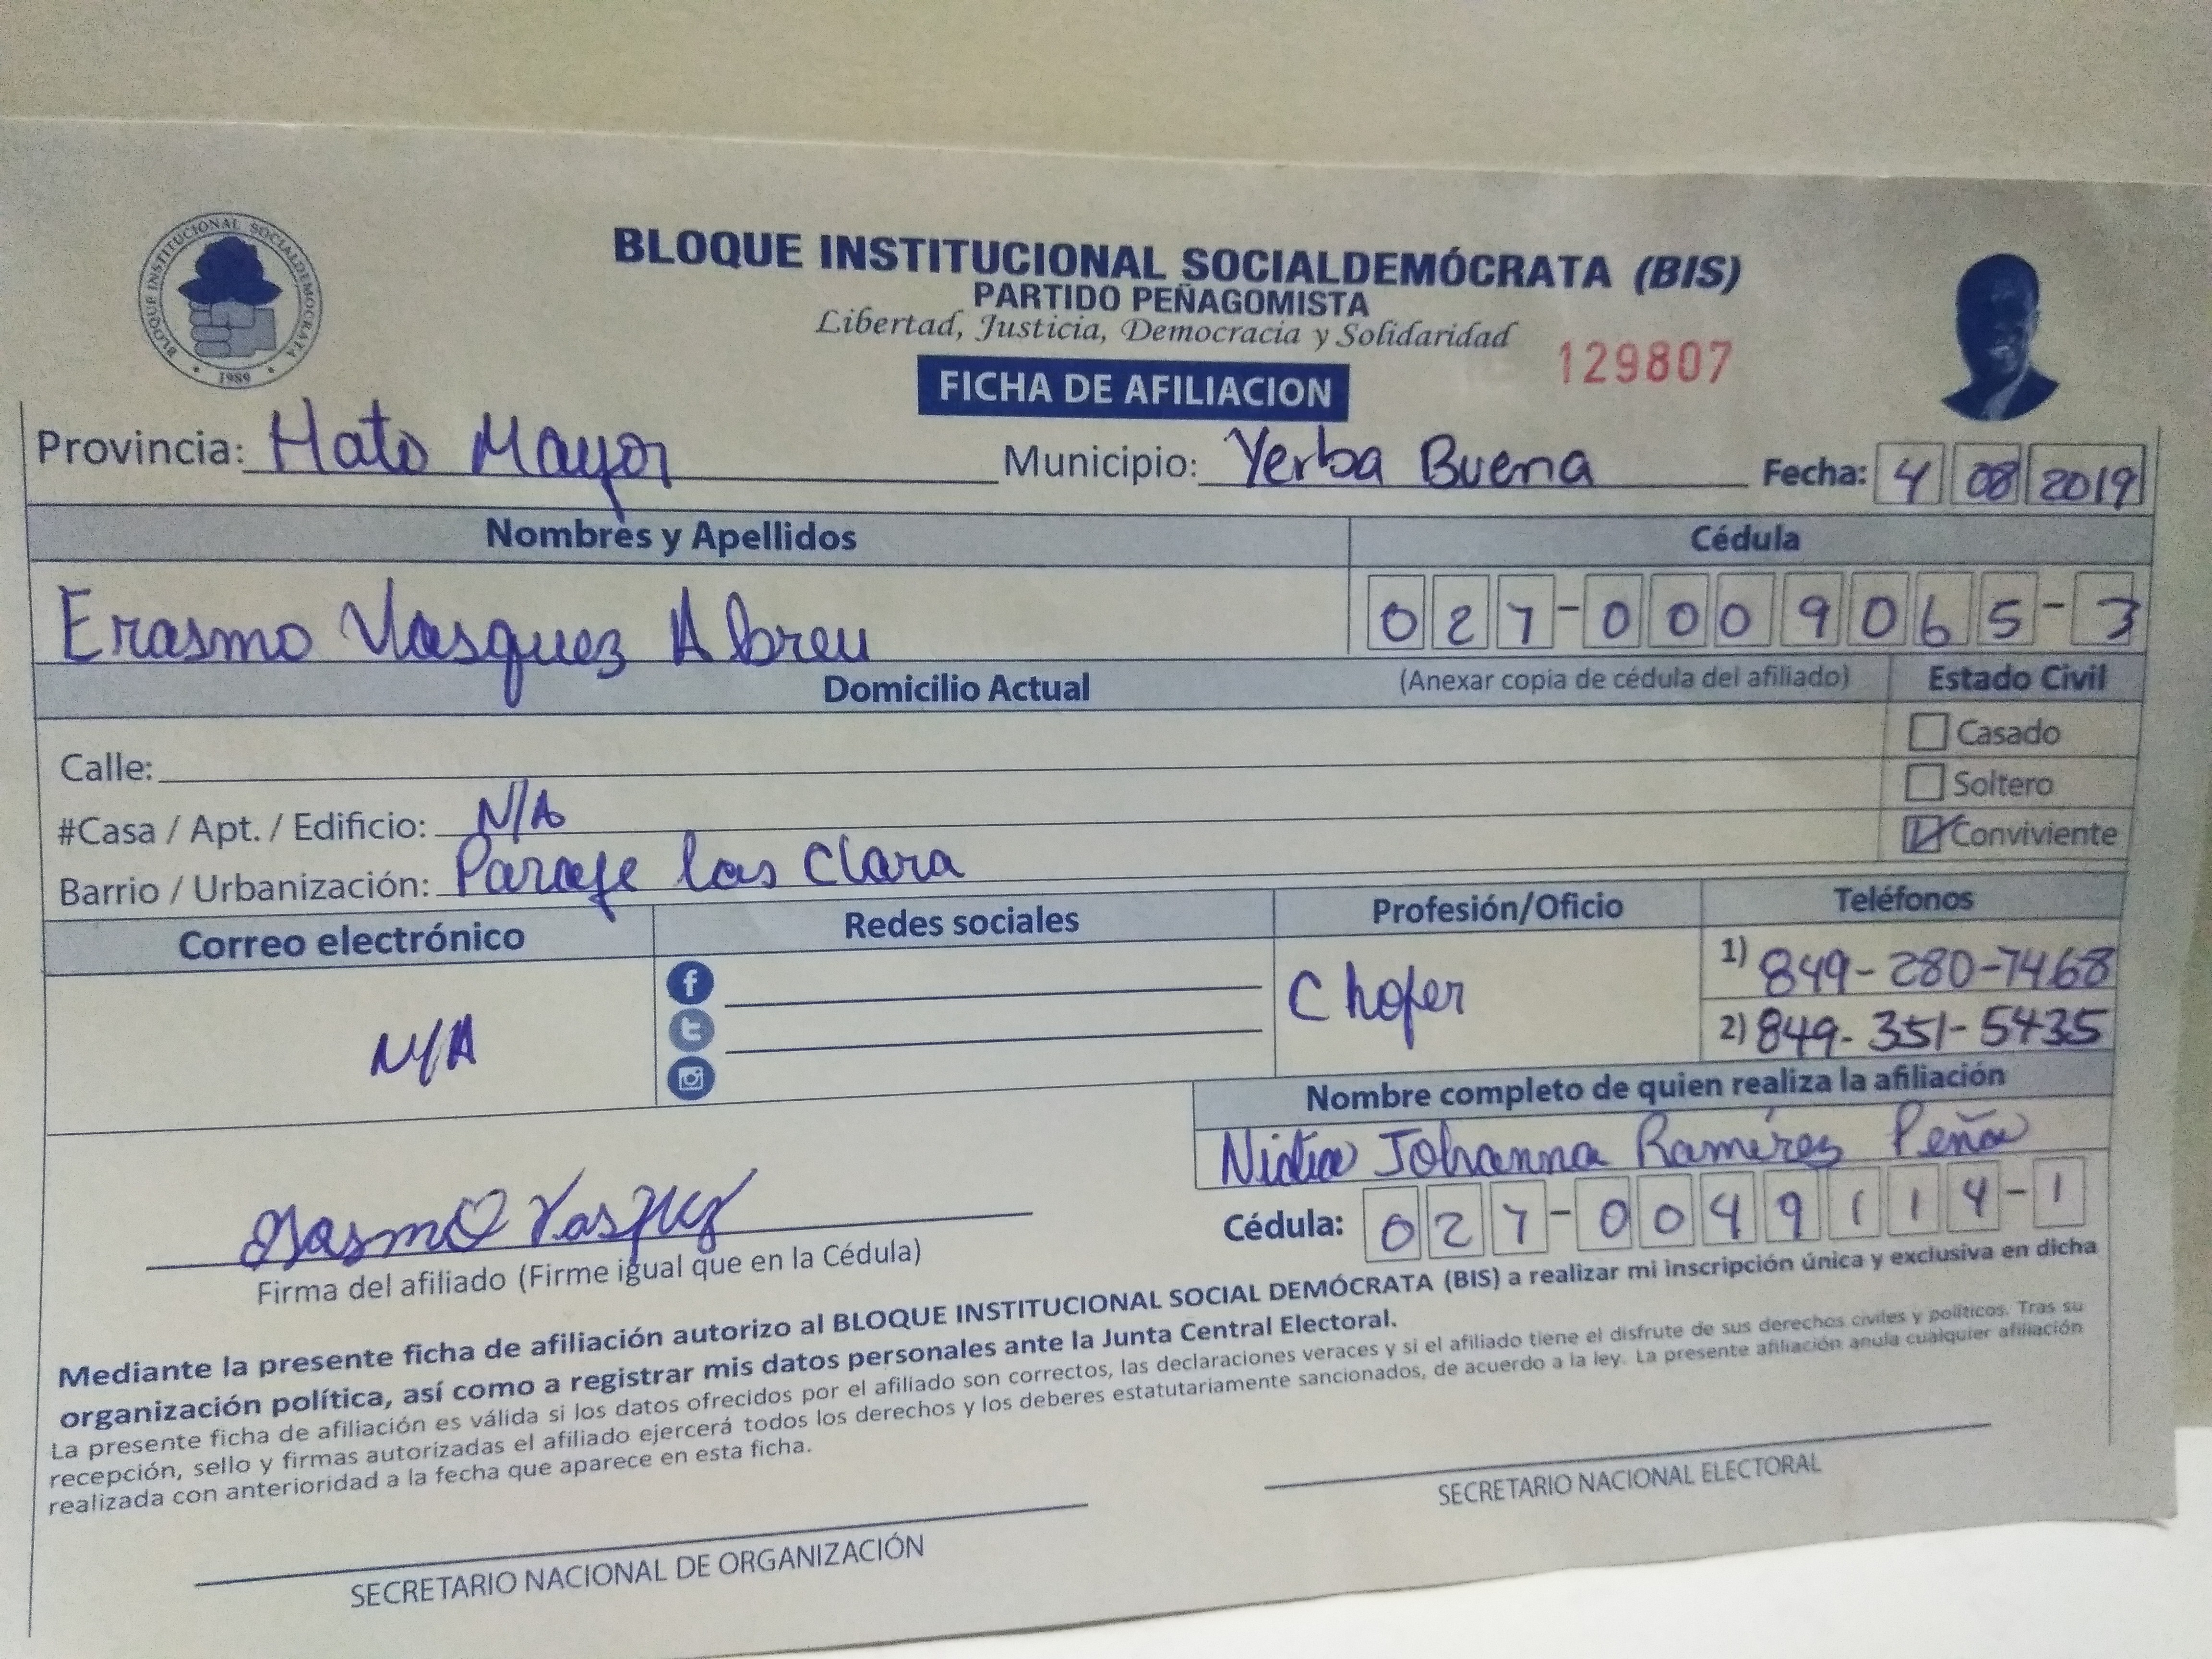 BLOQUE INSTITUCIONAL SOCIALDEMOCRATA
1989
BLOQUE INSTITUCIONAL SOCIALDEMÓCRATA (BIS)
PARTIDO PEÑAGOMISTA
Libertad, Justicia, Democracia y Solidaridad
FICHA DE AFILIACION 129807
Provincia: Hato Mayor Municipio: Yerba Buena Fecha: 4 08 2019
Nombres y Apellidos Cédula
Erasmo Vasquez Abreu 027-0009065-3
Domicilio Actual (Anexar copia de cédula del afiliado) Estado Civil
Calle: Casado
#Casa / Apt. / Edificio: N/A Soltero
Barrio / Urbanización: Paraje las Clara Conviviente
Correo electrónico Redes sociales Profesión/Oficio Teléfonos
N/A Chofer 1) 849-280-7468
2) 849-351-5435
Nombre completo de quien realiza la afiliación
Nidia Johanna Ramírez Peña
Cédula: 027-0049114-1
Erasmo Vasquez
Firma del afiliado (Firme igual que en la Cédula)
Mediante la presente ficha de afiliación autorizo al BLOQUE INSTITUCIONAL SOCIAL DEMÓCRATA (BIS) a realizar mi inscripción única y exclusiva en dicha
organización política, así como a registrar mis datos personales ante la Junta Central Electoral.
La presente ficha de afiliación es válida si los datos ofrecidos por el afiliado son correctos, las declaraciones veraces y si el afiliado tiene el disfrute de sus derechos civiles y políticos. Tras su
recepción, sello y firmas autorizadas el afiliado ejercerá todos los derechos y los deberes estatutariamente sancionados, de acuerdo a la ley. La presente afiliación anula cualquier afiliación
realizada con anterioridad a la fecha que aparece en esta ficha.
SECRETARIO NACIONAL DE ORGANIZACIÓN
SECRETARIO NACIONAL ELECTORAL